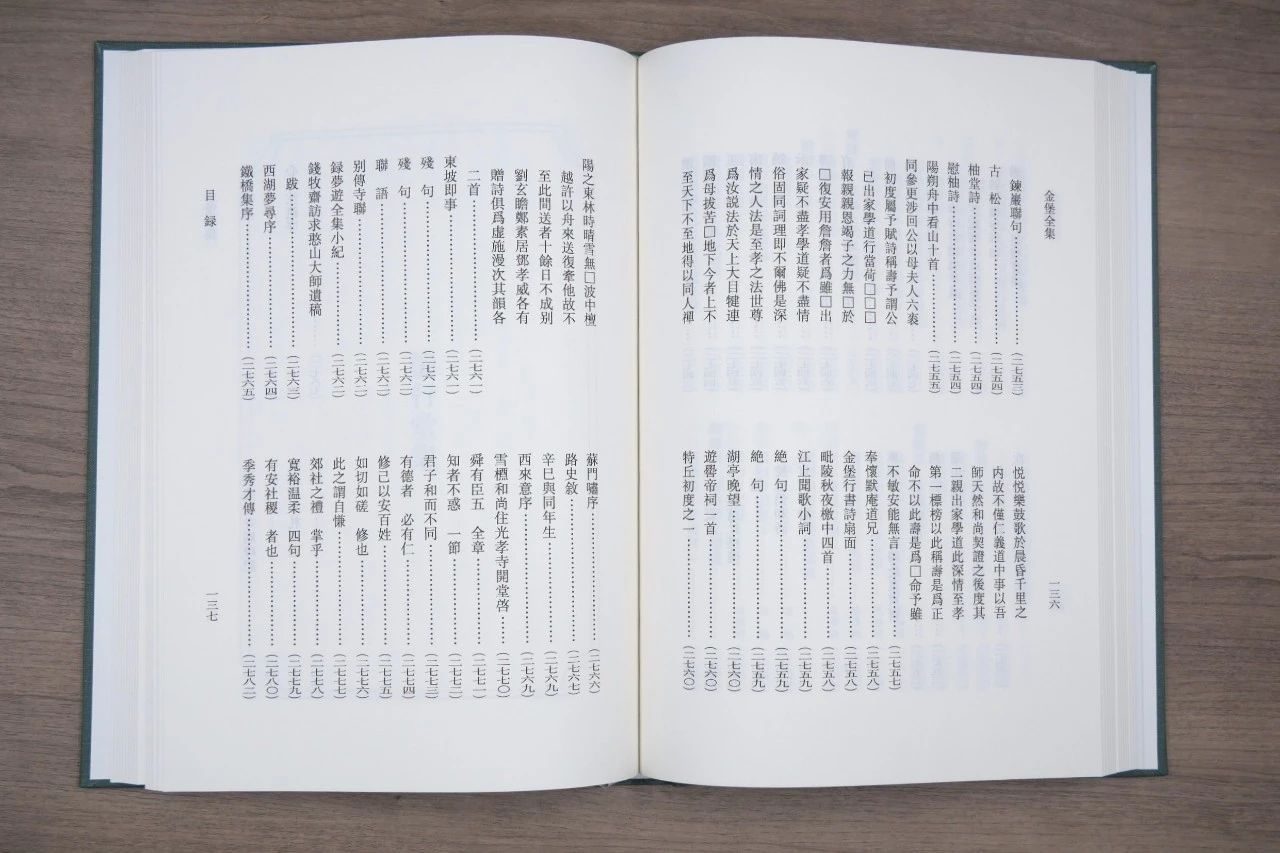 金堡全集
鍊巖聯句……………………(二七五三)
古　松……………………(二七五四)
柚堂詩……………………(二七五四)
慰柚詩……………………(二七五四)
陽朔舟中看山十首……………(二七五五)
同參更涉回公以母夫人六袠
初度屬予賦詩稱壽予謂公
已出家學道行當荷□□□
報親親恩竭子之力無□於
□復安用詹詹者爲雖□出
家疑不盡孝學道疑不盡情
俗固同詞理即不爾佛是深
情之人法是至孝之法世尊
爲汝説法於天上大目犍連
爲母拔苦□地下今者上不
至天下不至地得以同人禪
悦悦樂鼓歌於晨昏千里之
内故不僅仁義道中事以吾
師天然和尚契證之後度其
二親出家學道此深情至孝
第一標榜以此稱壽是爲正
命不以此壽是爲□命予雖
不敏安能無言……………………(二七五七)
奉懷默庵道兄……………………(二七五八)
金堡行書詩扇面……………………(二七五八)
毗陵秋夜檄中四首……………………(二七五八)
江上聞歌小詞……………………(二七五九)
絶　句……………………(二七五九)
絶　句……………………(二七五九)
湖亭晚望……………………(二七六〇)
遊嚳帝祠一首……………………(二七六〇)
特丘初度之一……………………(二七六〇)
一三六
陽之東林時晴雪無□波中檀
越許以舟來送復牽他故不
至此間送者十餘日不成别
劉玄瞻鄭素居鄧孝威各有
贈詩俱爲虛施漫次其韻各
二首……………………(二七六一)
東坡即事……………………(二七六一)
殘　句……………………(二七六一)
殘　句……………………(二七六二)
聯　語……………………(二七六二)
别傳寺聯……………………(二七六二)
録夢遊全集小紀……………………(二七六二)
錢牧齋訪求憨山大師遺稿
跋……………………(二七六三)
西湖夢尋序……………………(二七六四)
鐵橋集序……………………(二七六五)
蘇門嘯序……………………(二七六六)
路史敘……………………(二七六七)
辛巳與同年生……………………(二七六九)
西來意序……………………(二七六九)
雪櫏和尚住光孝寺開堂啓……(二七七〇)
舜有臣五　全章……………………(二七七一)
知者不惑　一節……………………(二七七二)
君子和而不同……………………(二七七三)
有德者　必有仁……………………(二七七四)
修己以安百姓……………………(二七七五)
如切如磋　修也……………………(二七七六)
此之謂自慊……………………(二七七七)
郊社之禮　掌乎……………………(二七七八)
寬裕温柔　四句……………………(二七七九)
有安社稷　者也……………………(二七八〇)
季秀才傳……………………(二七八二)
目　録
一三七